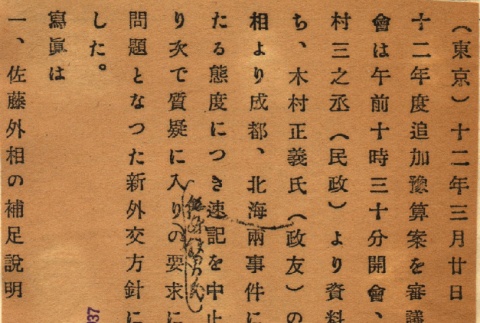 (東京)十二年三月廿日
十二年度追加豫算案を審議
會は午前十時三十分開會、
村三之丞(民政)より資料
ち、木村正義氏(政友)の
相より成都、北海兩事件に
たる態度につき速記を中止
り次で質疑に入りの要求に
問題となつた新外交方針に
した。
寫眞は
一、佐藤外相の補足說明
37